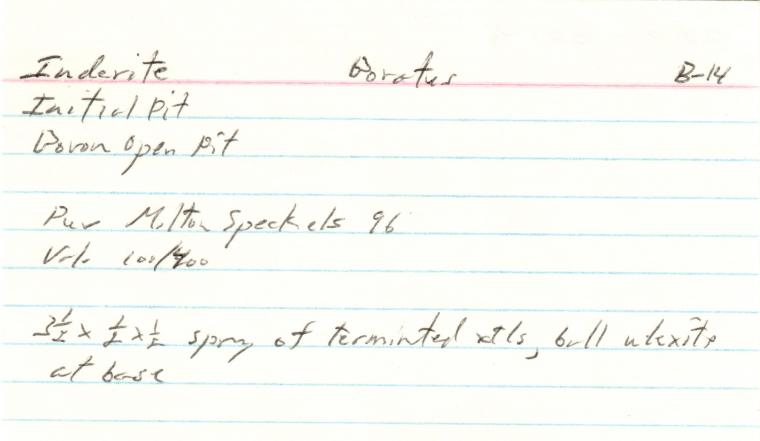 Inderite Borates B-14
Initial pit
Boron open pit
Pur Milton Speckels 96
Val. 100/400
3½ x ½ x ½ spray of terminted xtls, ball ulexite
at base